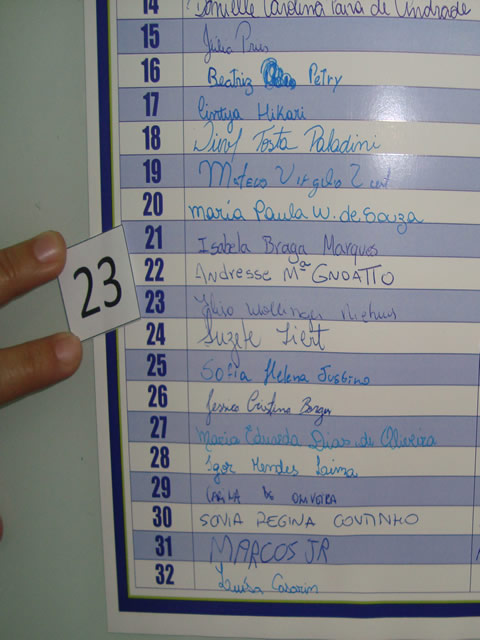 14 Danielle Carolina Faria de Andrade
15 Julia
16 Beatriz Petry
17 Cintya Hikari
18 Tosta Paladini
19 Mateus Virgilio
20 Maria Paula W. de Souza
21 Isabela Braga Marques
22 Andresse Mª GNOATTO
23
23
24 Suzete
25 Sofia Helena Justino
26 Jessica Cristina Borges
27 Maria Eduarda Dias de Oliveira
28 Igor Mendes
29 OLIVEIRA
30 SONIA REGINA COUTINHO
31 MARCOS JR
32 Luisa